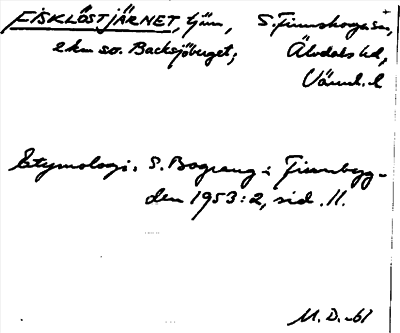 FISKLÖSTJÄRNET, tjärn, S. Finnskoga sn,
2 km so. Backsjöberget; Älvdals hd,
Värml. l
Etymologi. S. Bograng i Finnbyg-
den 1953:2, sid. 11.
M.D. -61